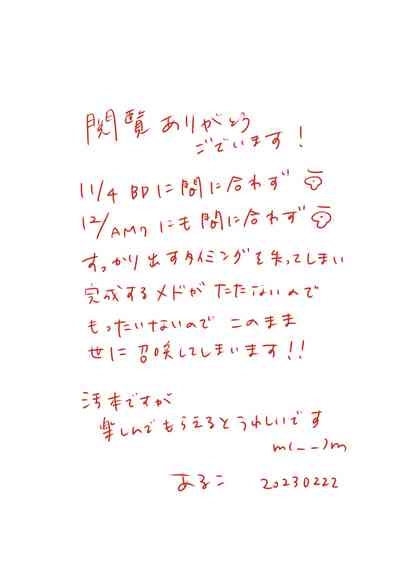 閲覧ありがとう
ございます！
11/4 BDに間に合わず
12/AM7にも間に合わず
すっかり出すタイミングを失ってしまい
完成するメドがたたないので
もったいないので このまま
世に召喚してしまいます！！
汚本ですが
楽しんでもらえるとうれしいです
m(__)m
あるこ 20230222